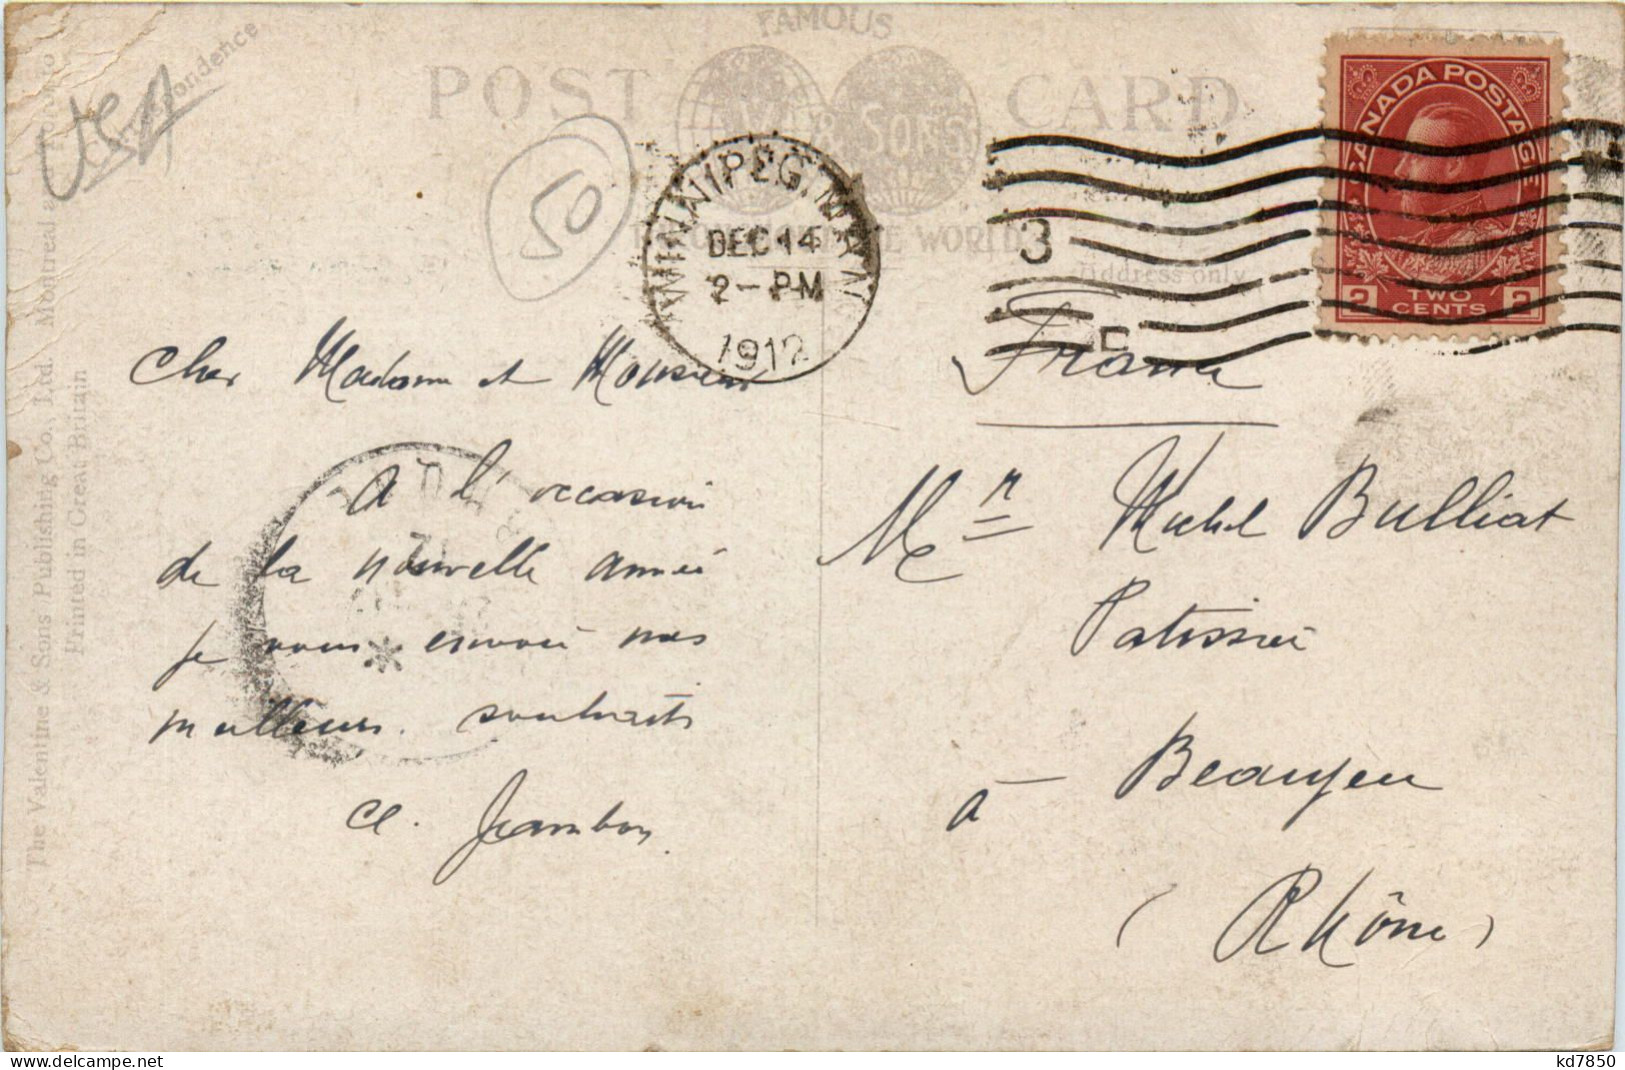 FAMOUS
POST CARD
& SONS
WORLD
Correspondence
Address only
The Valentine & Sons Publishing Co., Ltd. Montreal
Printed in Great Britain
50
WINNIPEG, MAN.
DEC 14
2-PM
1912
3
CANADA POSTAGE
2 TWO CENTS 2
Cher Madame et Monsieur
A l'occasion
de la nouvelle année
je vous envoie mes
meilleurs souhaits
Cl. Jambon
France
Mr Michel Bulliat
Patissier
à Beaujeu
(Rhône)
kd7850